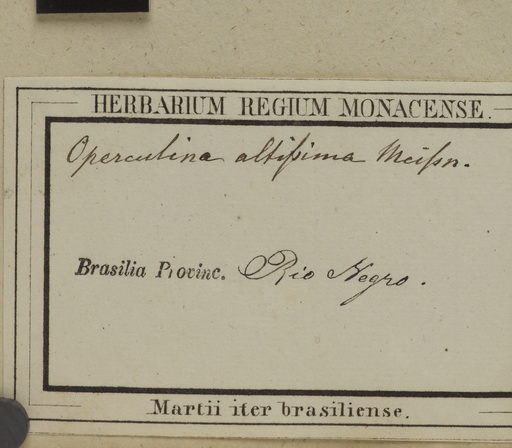 HERBARIUM REGIUM MONACENSE.
Operculina altiſsima Meiſsn.
Brasilia Provinc. Rio Negro.
Martii iter brasiliense.